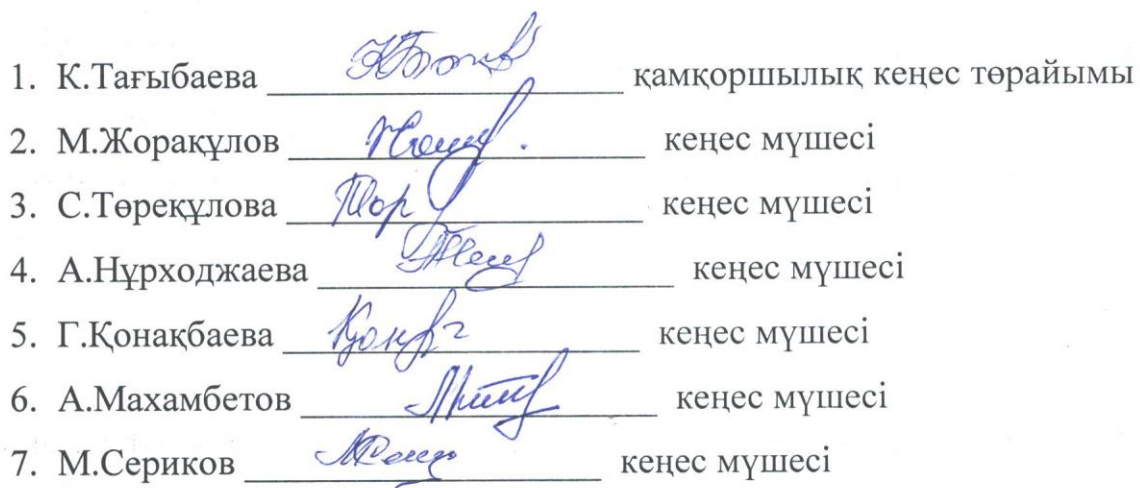 1. К.Тағыбаева ____________ қамқоршылық кеңес төрайымы
2. М.Жорақұлов ____________ кеңес мүшесі
3. С.Төреқұлова Төр ____________ кеңес мүшесі
4. А.Нұрходжаева ____________ кеңес мүшесі
5. Г.Қонақбаева ____________ кеңес мүшесі
6. А.Махамбетов ____________ кеңес мүшесі
7. М.Сериков ____________ кеңес мүшесі